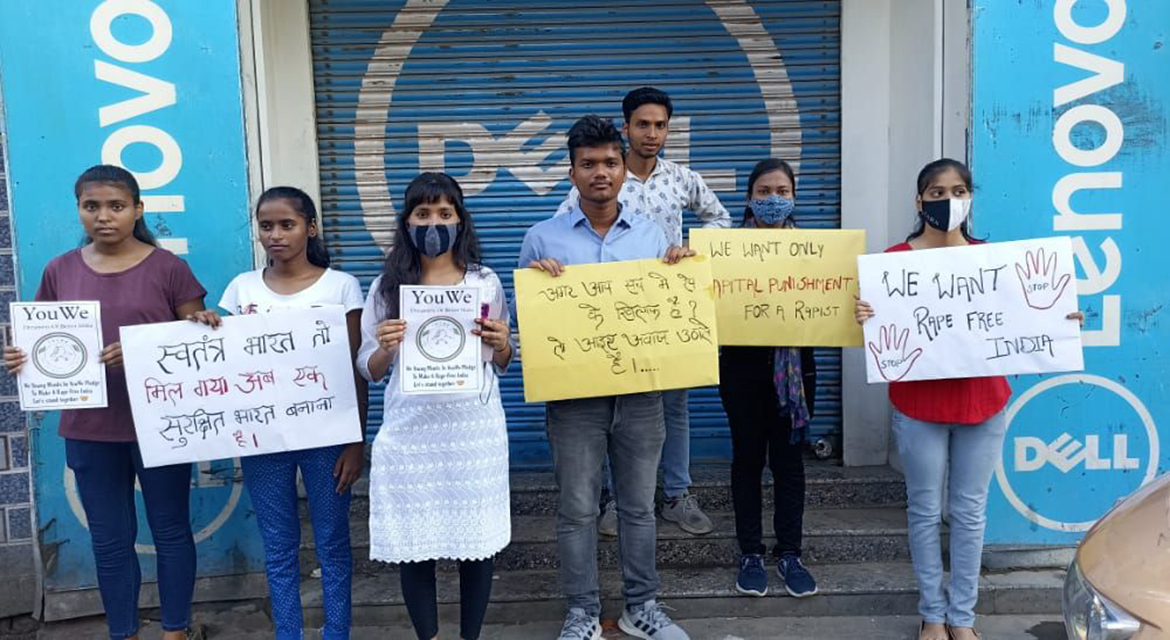 lenovo
DELL
Lenovo
DELL
YouWe
Dreamers Of Better India
We Young Minds In YouWe Pledge
To Make A Rape Free India
Let's stand together
स्वतंत्र भारत तो
मिल गया अब एक
सुरक्षित भारत बनाना
है।
YouWe
Dreamers Of Better India
We Young Minds In YouWe Pledge
To Make A Rape Free India
Let's stand together
अगर आप सच मे रेप
के खिलाफ है ?
तो आइए आवाज उठाते
है।.....
WE WANT ONLY
APITAL PUNISHMENT
FOR A RAPIST
WE WANT
RAPE FREE
INDIA
STOP
STOP